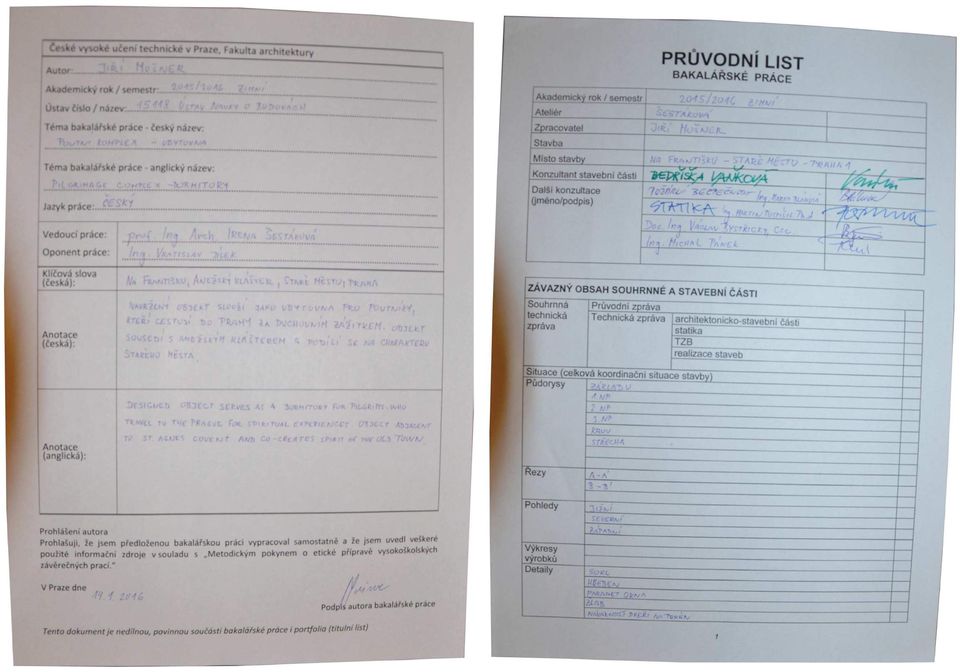 České vysoké učení technické v Praze, Fakulta architektury
Autor: JIŘÍ MUŠNER
Akademický rok / semestr: 2015/2016 ZIMNÍ
Ústav číslo / název: 15118 ÚSTAV NAUKY O BUDOVÁCH
Téma bakalářské práce - český název:
POUTNÍ KOMPLEX - UBYTOVNA
Téma bakalářské práce - anglický název:
PILGRIMAGE COMPLEX - DORMITORY
Jazyk práce: ČESKÝ
Vedoucí práce: prof. Ing. Arch. IRENA ŠESTÁKOVÁ
Oponent práce: Ing. VRATISLAV DÍLEK
Klíčová slova (česká): NA FRANTIŠKU, ANEŽSKÝ KLÁŠTER, STARÉ MĚSTO, PRAHA
Anotace (česká):
NAVRŽENÝ OBJEKT SLOUŽÍ JAKO UBYTOVNA PRO POUTNÍKY,
KTEŘÍ CESTUJÍ DO PRAHY ZA DUCHOVNÍM ZÁŽITKEM. OBJEKT
SOUSEDÍ S ANEŽSKÝM KLÁŠTEREM A PODÍLÍ SE NA CHARAKTERU
STARÉHO MĚSTA.
Anotace (anglická):
DESIGNED OBJECT SERVES AS A DORMITORY FOR PILGRIMS WHO
TRAVEL TO THE PRAGUE FOR SPIRITUAL EXPERIENCE. OBJECT ADJACENT
TO ST AGNES COVENT AND CO-CREATES SPIRIT OF THE OLD TOWN
Prohlášení autora
Prohlašuji, že jsem předloženou bakalářskou práci vypracoval samostatně a že jsem uvedl veškeré
použité informační zdroje v souladu s „Metodickým pokynem o etické přípravě vysokoškolských
závěrečných prací."
V Praze dne 19.1.2016
Podpis autora bakalářské práce
Tento dokument je nedílnou, povinnou součástí bakalářské práce i portfolia (titulní list)
PRŮVODNÍ LIST
BAKALÁŘSKÉ PRÁCE
Akademický rok / semestr 2015/2016 ZIMNÍ
Ateliér ŠESTÁKOVÁ
Zpracovatel JIŘÍ MUŠNER
Stavba
Místo stavby NA FRANTIŠKU - STARÉ MĚSTO - PRAHA 1
Konzultant stavební části BEDŘIŠKA VAŇKOVÁ
Další konzultace (jméno/podpis)
POŽÁRNÍ BEZPEČNOST Ing.
STATIKA Ing. MARTIN Ph.D
Doc. Ing VÁCLAV BYSTŘICKÝ, CSc
Ing. MICHAL PÁNEK
ZÁVAZNÝ OBSAH SOUHRNNÉ A STAVEBNÍ ČÁSTI
Souhrnná technická zpráva
Průvodní zpráva
Technická zpráva
architektonicko-stavební části
statika
TZB
realizace staveb
Situace (celková koordinační situace stavby)
Půdorysy
ZÁKLADŮ
1.NP
2.NP
3.NP
KROV
STŘECHA
Řezy
A-A'
B-B'
Pohledy
JIŽNÍ
SEVERNÍ
ZÁPADNÍ
Výkresy výrobků
Detaily
SOKL
HŘEBEN
PARAPET OKNA
ŽLAB
1